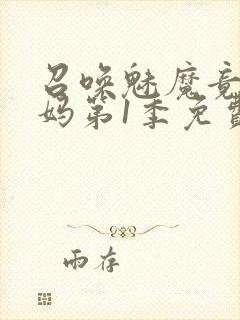 召唤魅魔竟
妈第1季免费
雨存